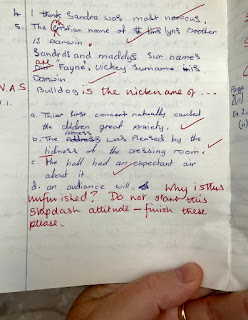 4. I think Sandra was most nervous.
5. The christian name of lyns brother
is Darwin.
Sandras and maddys sur names
are Fayne. Vickey surname is
Darwin
V.A.S Bulldog is the nickname of ...
a. Thier last concert naturally caused
the children great anxiety.
b. The was pleased by the
tidness of the dressing room.
c. The hall had an expectant air
about it.
d. an audience will. Why is this
unfinished? Do not start this
slapdash attitude – finish these
please.
Page